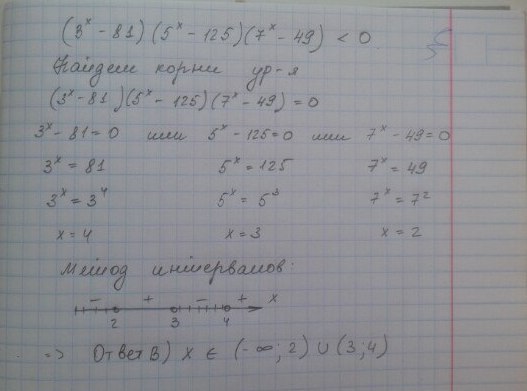 (3^x - 81)(5^x - 125)(7^x - 49) < 0
Найдем корни ур-я
(3^x - 81)(5^x - 125)(7^x - 49) = 0
3^x - 81 = 0 или 5^x - 125 = 0 или 7^x - 49 = 0
3^x = 81 5^x = 125 7^x = 49
3^x = 3^4 5^x = 5^3 7^x = 7^2
x = 4 x = 3 x = 2
Метод интервалов:
- + - + x
2 3 4
=> Ответ В) x ∈ (-∞; 2) ∪ (3; 4)